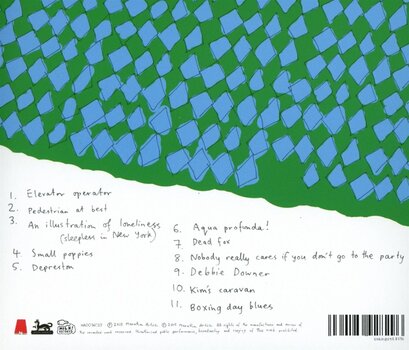 1. Elevator operator
2. Pedestrian at best
3. An illustration of loneliness
(sleepless in New York)
4. Small poppies
5. Depreston
6. Aqua profunda!
7 Dead fox
8. Nobody really cares if you don't go to the party
9 Debbie Downer
10. Kim's caravan
11. Boxing day blues
MILK!